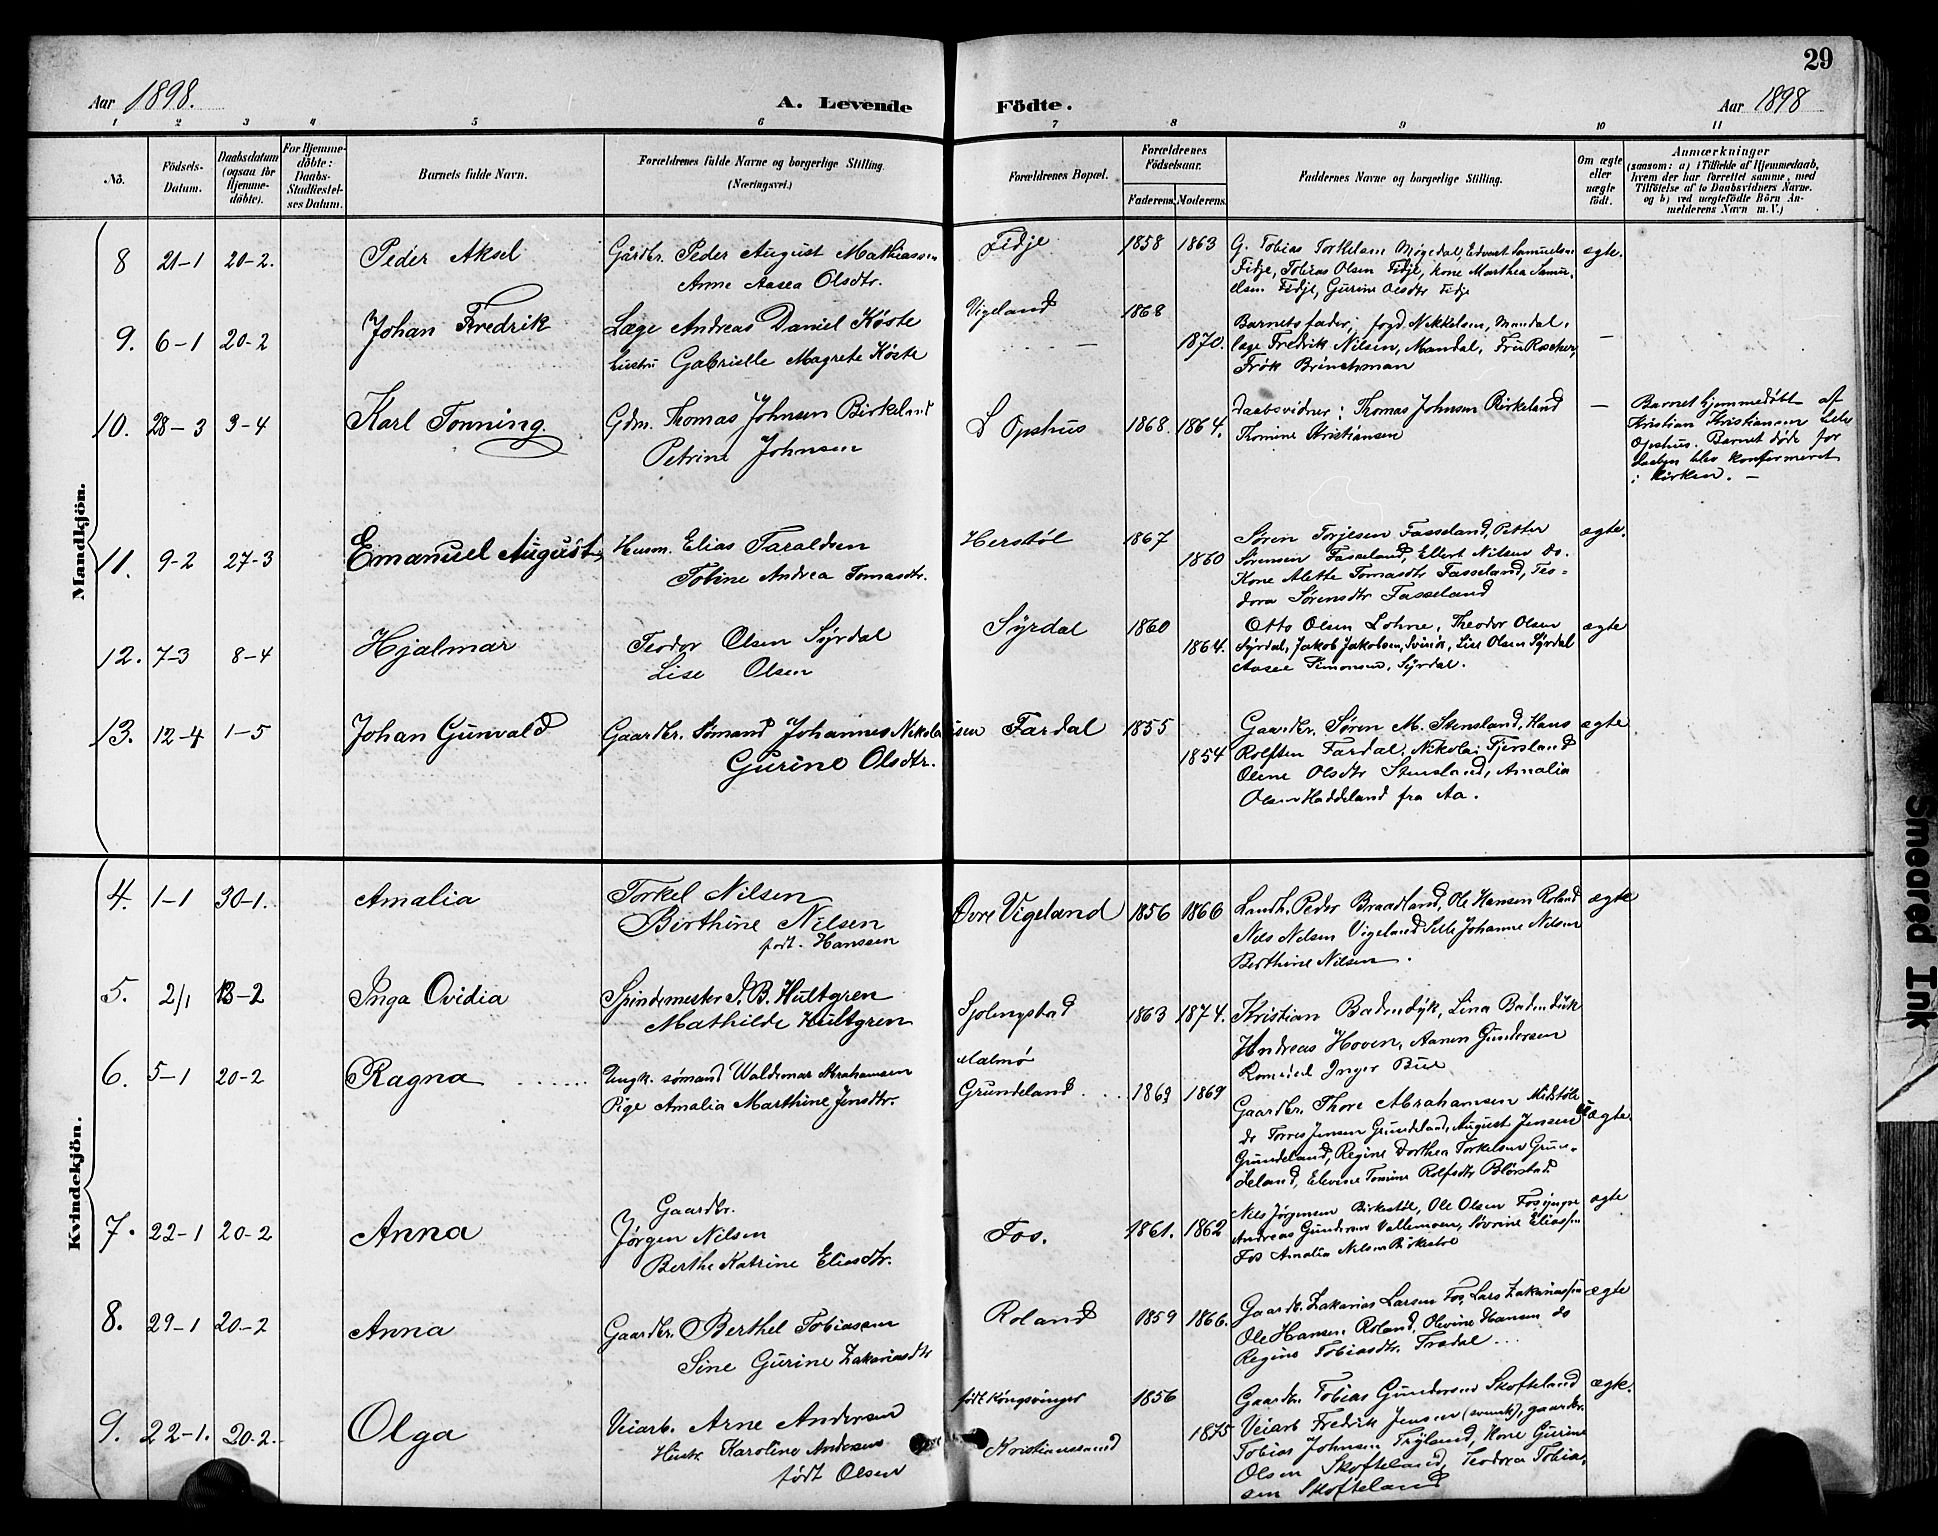 29
Aar 1898. A. Levende Födte. Aar 1898
1 2 3 4 5 6 7 8 9 10 11
No. Födsels-Datum. Daabsdatum (ogsaa for Hjemmedöbte). For Hjemmedöbte: Daabs-Stadfæstelses Datum. Barnets fulde Navn. Forældrenes fulde Navne og borgerlige Stilling. (Næringsvei.) Forældrenes Bopæl. Forældrenes Födselsaar. Faderens. Moderens. Faddernes Navne og borgerlige Stilling. Om ægte eller uægte født. Anmærkninger (saasom: a) i Tilfælde af Hjemmedaab, hvem der har forrettet samme, med Tilföielse af to Daabsvidners Navne. og b) ved uægtefödte Börn Anmelderens Navn m. V.)
Mandkjön.
8 21-1 20-2. Peder Aksel Gårdbr. Peder August Mathiassen Fidje 1858 1863 G. Tobias Torkelsen Møgedal, Edvart Samuelsen ægte.
Anne Aasea Olsdtr. Fidje, Tobias Olsen Fidje, kone Marthea Samu-
elsen Fidje, Gurine Olsdtr Fidje
9. 6-1 20-2 Johan Fredrik Læge Andreas Daniel Køste Vigeland 1868 Barnets fader, fogd Nikkelsen, Mandal,
hustru Gabrielle Magrete Køste — 1870. læge Fredrik Nilsen, Mandal, Fru Roscher, —
Frøk Brinchman
10. 28-3 3-4 Karl Tonning Gdm. Thomas Johnsen Birkeland L Opshus 1868. 1864. Daabsvidner: Thomas Johnsen Birkeland — Barnet hjemmedøbt af
Petrine Johnsen Thomine Kristiansen Kristian Kristiansen Lille
Opshus. Barnet døde før
daaben blev konfermeret
i kirken. —
11. 9-2 27-3 Emanuel August Husm. Elias Taraldsen Herstøl 1867 Søren Torjesen Fasseland, Petter ægte.
Tobine Andrea Tomasdtr. 1860 Sørensen Fasseland, Ellert Nilsen do.
Kone Alette Tomasdtr Fasseland, Teo-
dora Sørensdtr Fasseland
12. 7-3 8-4 Hjalmar Teodor Olsen Syrdal Syrdal 1860 Otto Olsen Lohne, Theodor Olsen ægte
Lise Olsen 1864. Syrdal, Jakob Jakobsen Svinør, Lise Olsen Syrdal
Aasee Simonsen, Syrdal.
13. 12-4 1-5 Johan Gunvald Gaardbr. Sømand Johannes Nikolaisen Fardal 1855 Gaardbr. Søren M. Stensland, Hans ægte
Gurine Olsdtr. 1854 Rolfsen Fardal, Nikolai Fjersland
Olene Olsdtr Stensland, Amalia
Olsen Haddeland fra Aa.
Kvindekjön.
4. 1-1 30-1. Amalia Torkel Nilsen Øvre Vigeland 1856 1866 Landh. Peder Braadland, Ole Hansen Roland ægte
Birthine Nilsen Nils Nilsen Vigeland, Johanne Nilsen
født Hanssen Berthine Nilsen.
5. 2/1 13-2 Inga Ovidia Spindemester J. B. Hultgren Sjølingstad 1863 1874. Kristian Badendyk, Lina Badendik
Mathilde Hultgren Andreas Hoven, Aanen Gundersen
Inger Bue
6. 5-1 20-2 Ragna Ungk. sømand Waldemar Abrahamsen Malmø
Pige Amalia Marthine Jensdtr. Grundeland 1869 1869 Gaardbr. Thore Abrahamsen Midbøe uægte
do Torres Jensen Grundeland, August Jensen
Grundeland, Regine Dorthea Torkelsen Grun-
deland, Elevine Tomine Rolfsdtr
7. 22-1 20-2 Anna Gaardbr.
Jørgen Nilsen Fos. 1861. 1862 Nils Jørgensen Birkestøl, Ole Olsen ægte
Berthe Katrine Eliasdtr. Andreas Gundersen Vallemoen, Søvrine Eliassen
Fos Amalia Nilsen Birkestøl
8. 29-1 20-2 Anna Gaardbr. Berthel Tobiassen Roland 1859 1866. Gaardb. Zakarias Larsen Fos, Lars Zakariassen ægte
Sine Gurine Zakariasdtr Ole Hansen Roland, Olevine Hansen do
Regine Tobiasdtr.
9. 22-1. 20-2. Olga Veiarb. Arne Andersen født Kongsvinger 1856 Gaardbr Tobias Gundersen Skofteland ægte.
Hustr. Karoline Andersen Kristianssand 1875 Veiarb Fredrik Jensen (svensk), gaardbr.
født Olsen Tobias Johnsen Tryland, Kone Gurine
Olsen Skofteland, Teodora Tobia-
sen Skofteland
Smeared Ink